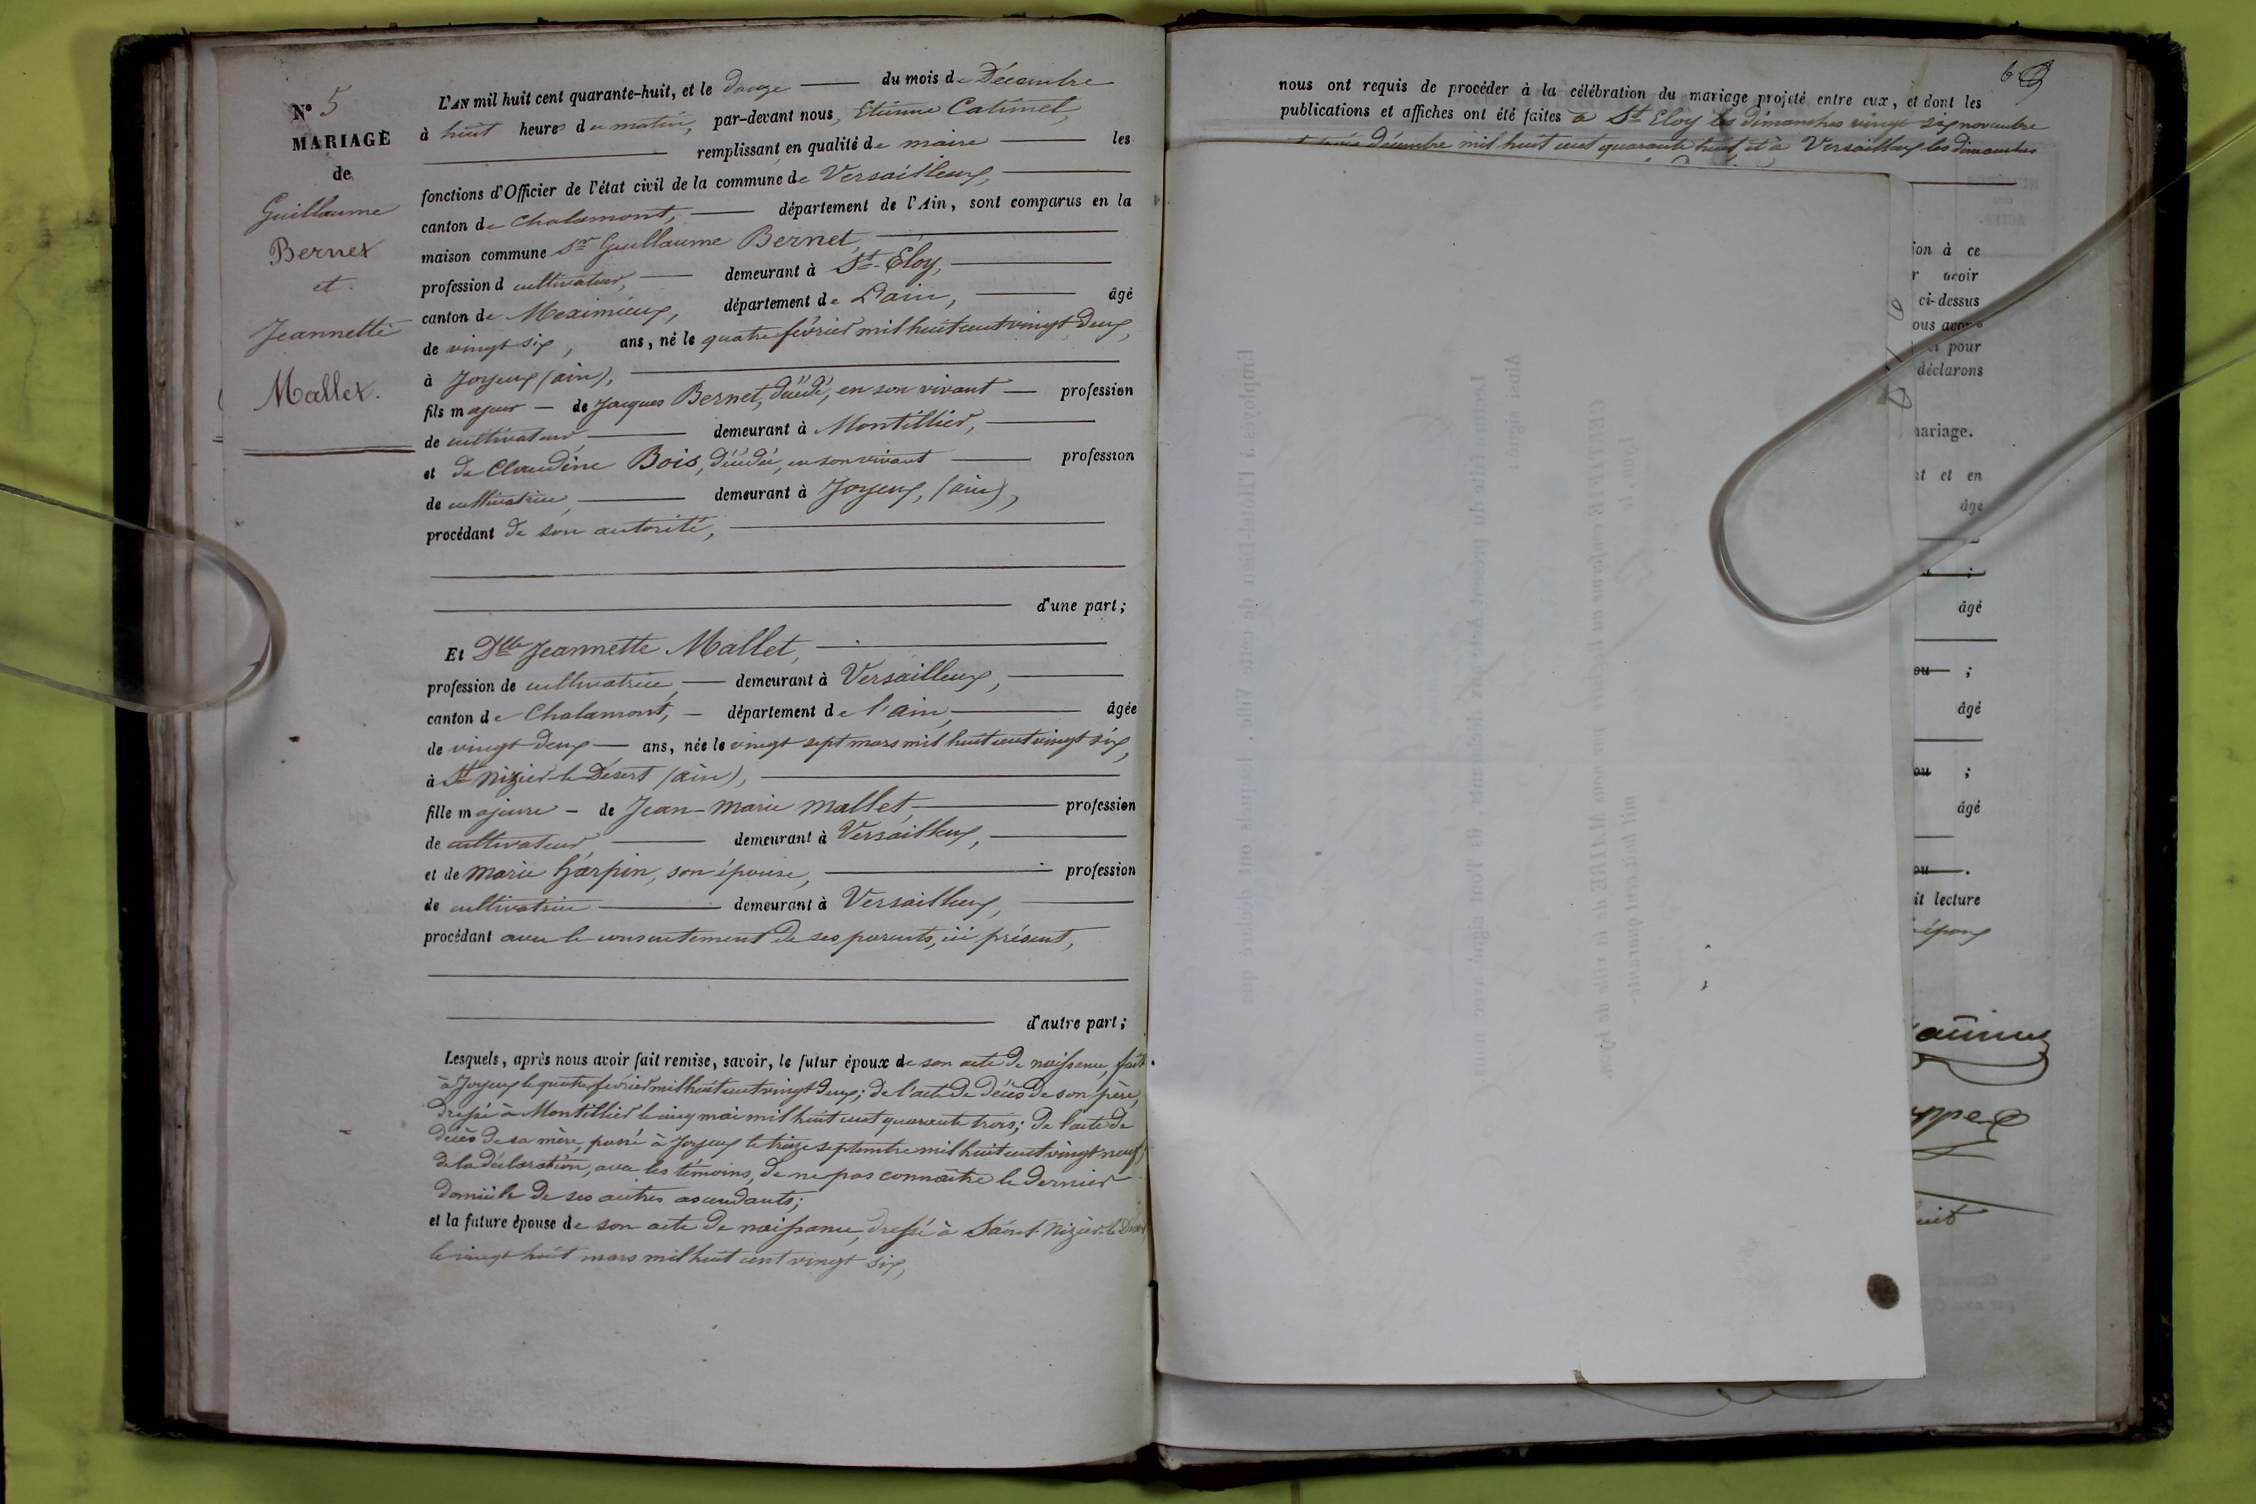 N° 5
MARIAGE
de
Guillaume
Bernet
et
Jeannette
Mallet.
L'AN mil huit cent quarante-huit, et le douze du mois de Décembre
à huit heures du matin, par-devant nous, Etienne Catimel,
remplissant en qualité de maire les
fonctions d'Officier de l'état civil de la commune de Versailleux,
canton de Chalamont, département de l'Ain, sont comparus en la
maison commune Sr Guillaume Bernet,
profession d cultivateur, demeurant à St-Éloy,
canton de Meximieux, département de L'ain, âgé
de vingt six, ans, né le quatre février mil huit cent vingt deux,
à Joyeux (ain),
fils majeur de Jacques Bernet, décédé, en son vivant profession
de cultivateur, demeurant à Montillier,
et de Claudine Bois, décédée, en son vivant profession
de cultivatrice, demeurant à Joyeux, (ain),
procédant de son autorité,
d'une part;
Et Dlle Jeannette Mallet,
profession de cultivatrice, demeurant à Versailleux,
canton de Chalamont, département de l'ain, âgée
de vingt deux ans, née le vingt sept mars mil huit cent vingt six,
à St Nizier-le-Désert (ain),
fille majeure de Jean-Marie Mallet, profession
de cultivateur, demeurant à Versailleux,
et de Marie son épouse, profession
de cultivatrice demeurant à Versailleux,
procédant avec le consentement de ses parents, ici présent,
d'autre part;
Lesquels, après nous avoir fait remise, savoir, le futur époux de son acte de naissance, fait
à Joyeux le quatre février mil huit cent vingt deux; de l'acte de décès de son père,
dressé à Montillier le cinq mai mil huit cent quarante trois; de l'acte de
décès de sa mère, passé à Joyeux le treize septembre mil huit cent vingt neuf;
de la déclaration, avec les témoins, de ne pas connaître le dernier
domicile de ses autres ascendants;
et la future épouse de son acte de naissance, dressé à Saint-Nizier-le-Désert,
le vingt huit mars mil huit cent vingt six,
nous ont requis de procéder à la célébration du mariage projeté entre eux, et dont les
publications et affiches ont été faites à St Eloy les dimanches vingt six novembre
et trois décembre mil huit cent quarante huit, et à Versailleux les dimanches
ion à ce
r avoir
ci-dessus
ous avons
pour
déclarons
mariage.
nt et en
âgé
ou ;
âgé
ou ;
âgé
ou ;
âgé
ou .
it lecture
époux